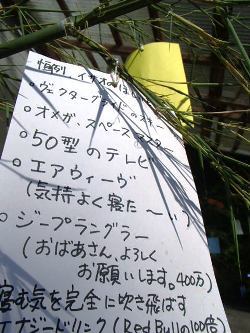 恒例 イチオの
。ヴェクターグライドのスキー
。オメガ、スペースマスター
。50型のテレビ
。エアウィーヴ
(気持よく寝た〜い)
。ジープラングラー
(おばあさん、よろしく
お願いします。400万)
眠む気を完全に吹き飛ばす
エナジードリンク(Red Bullの100倍)